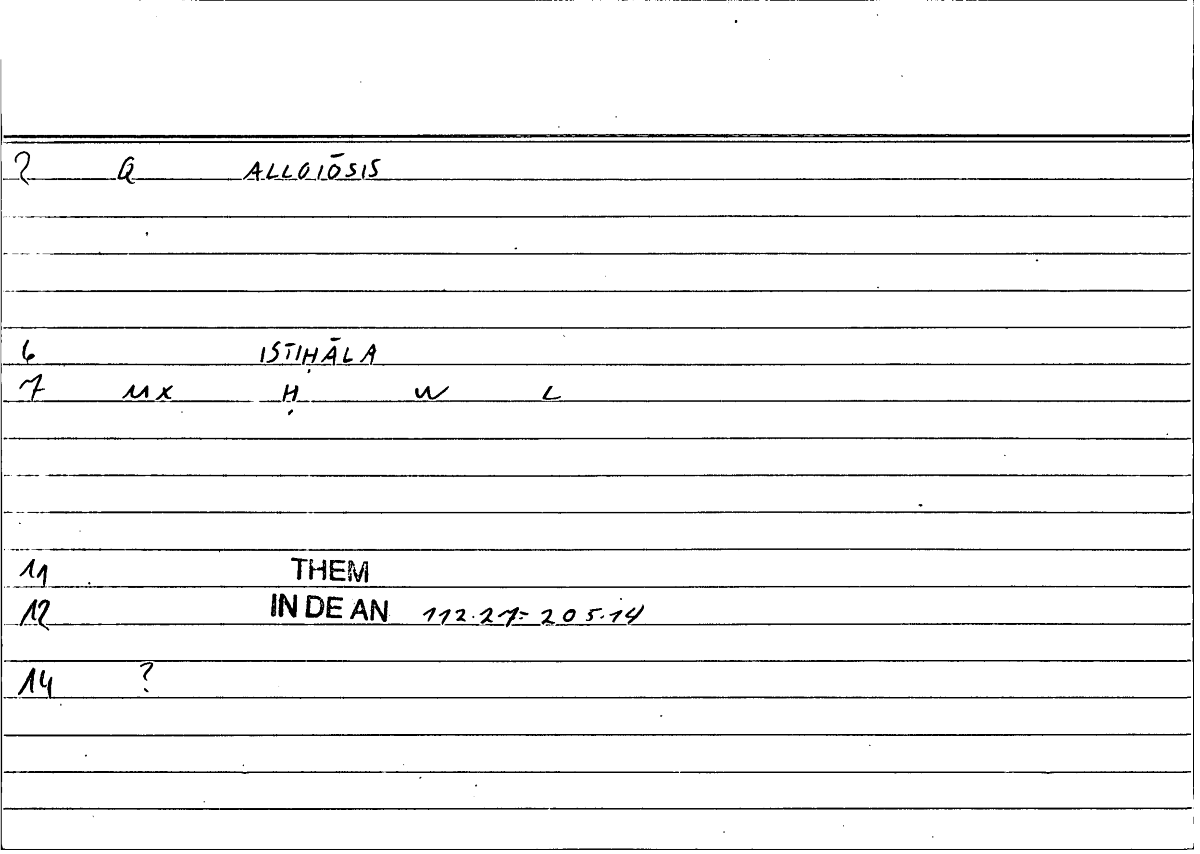 2 Q ALLOIŌSIS
6 ISTIḤĀLA
7 MX Ḥ W L
11 THEM
12 IN DE AN 112.27= 205.14
14 ?